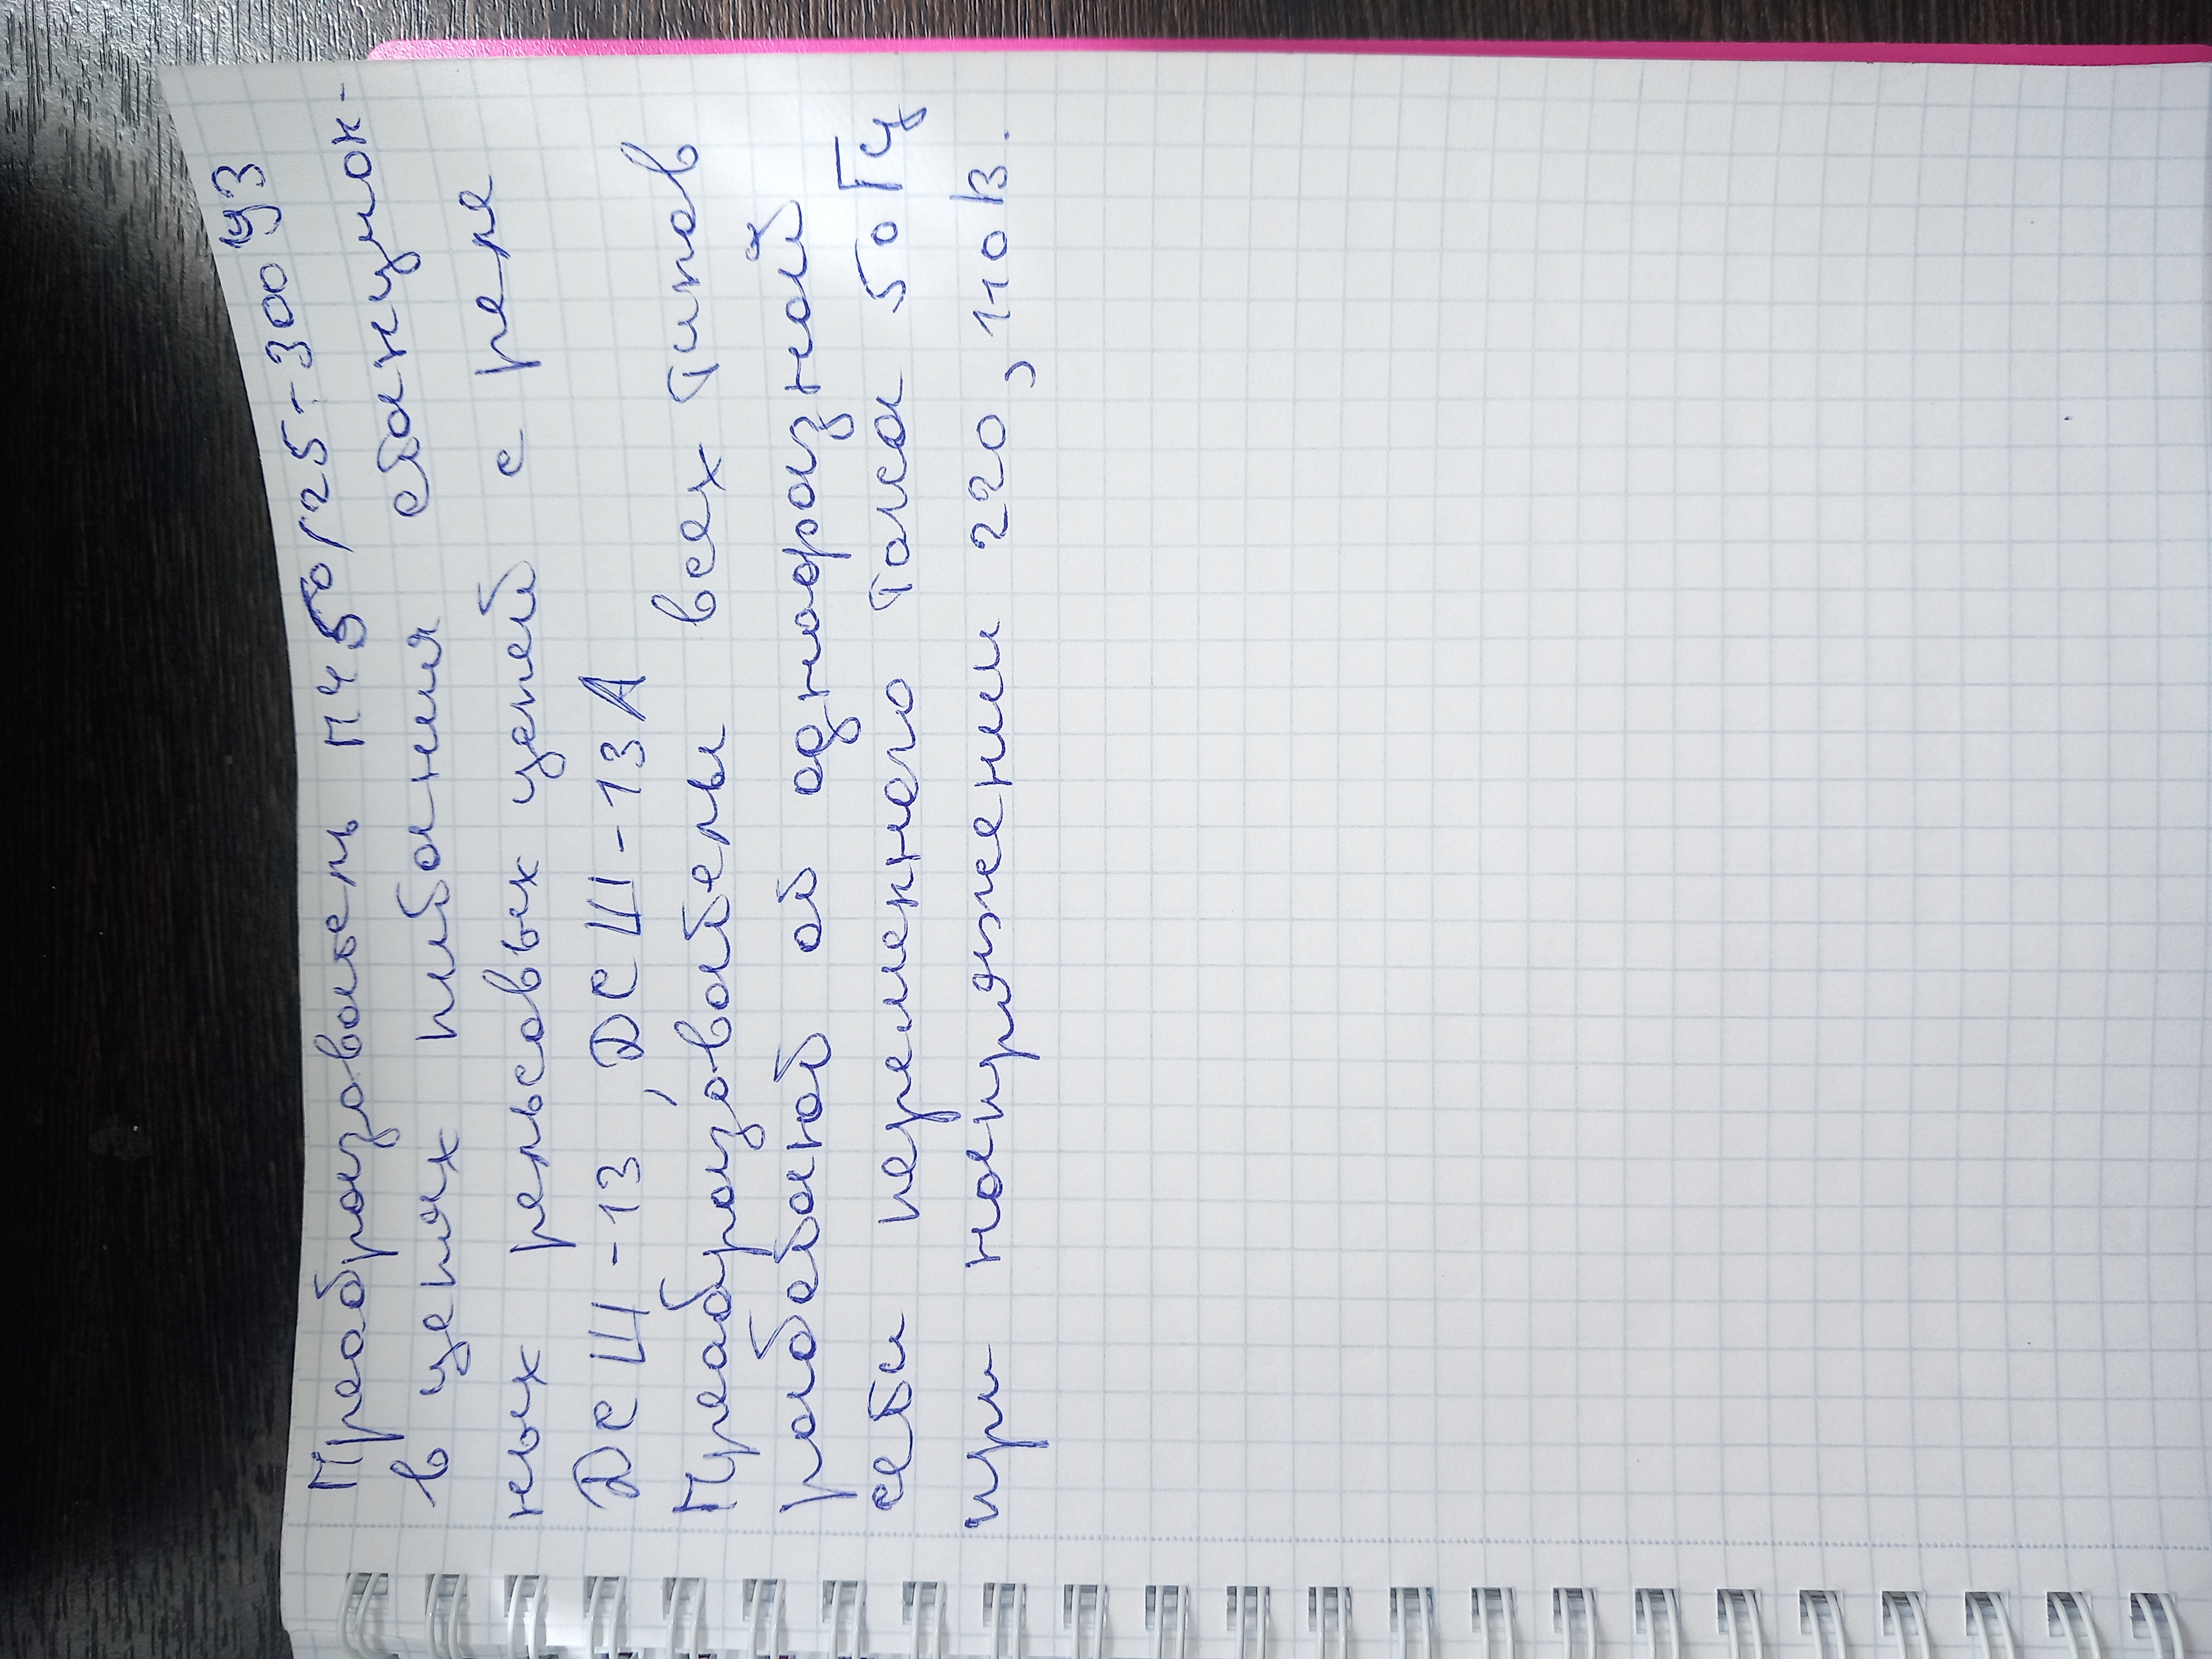 Преобразователь ПЧ50/25-300 У3
в цепях питания станцион-
ных рельсовых цепей с реле
ДСШ-13, ДСШ-13А
Преобразователи всех типов
работают от однофазной
сети переменного тока 50 Гц
при напряжении 220, 110 В.